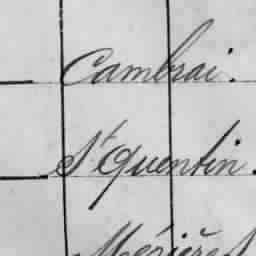 Cambrai.
St Quentin.
Mézières